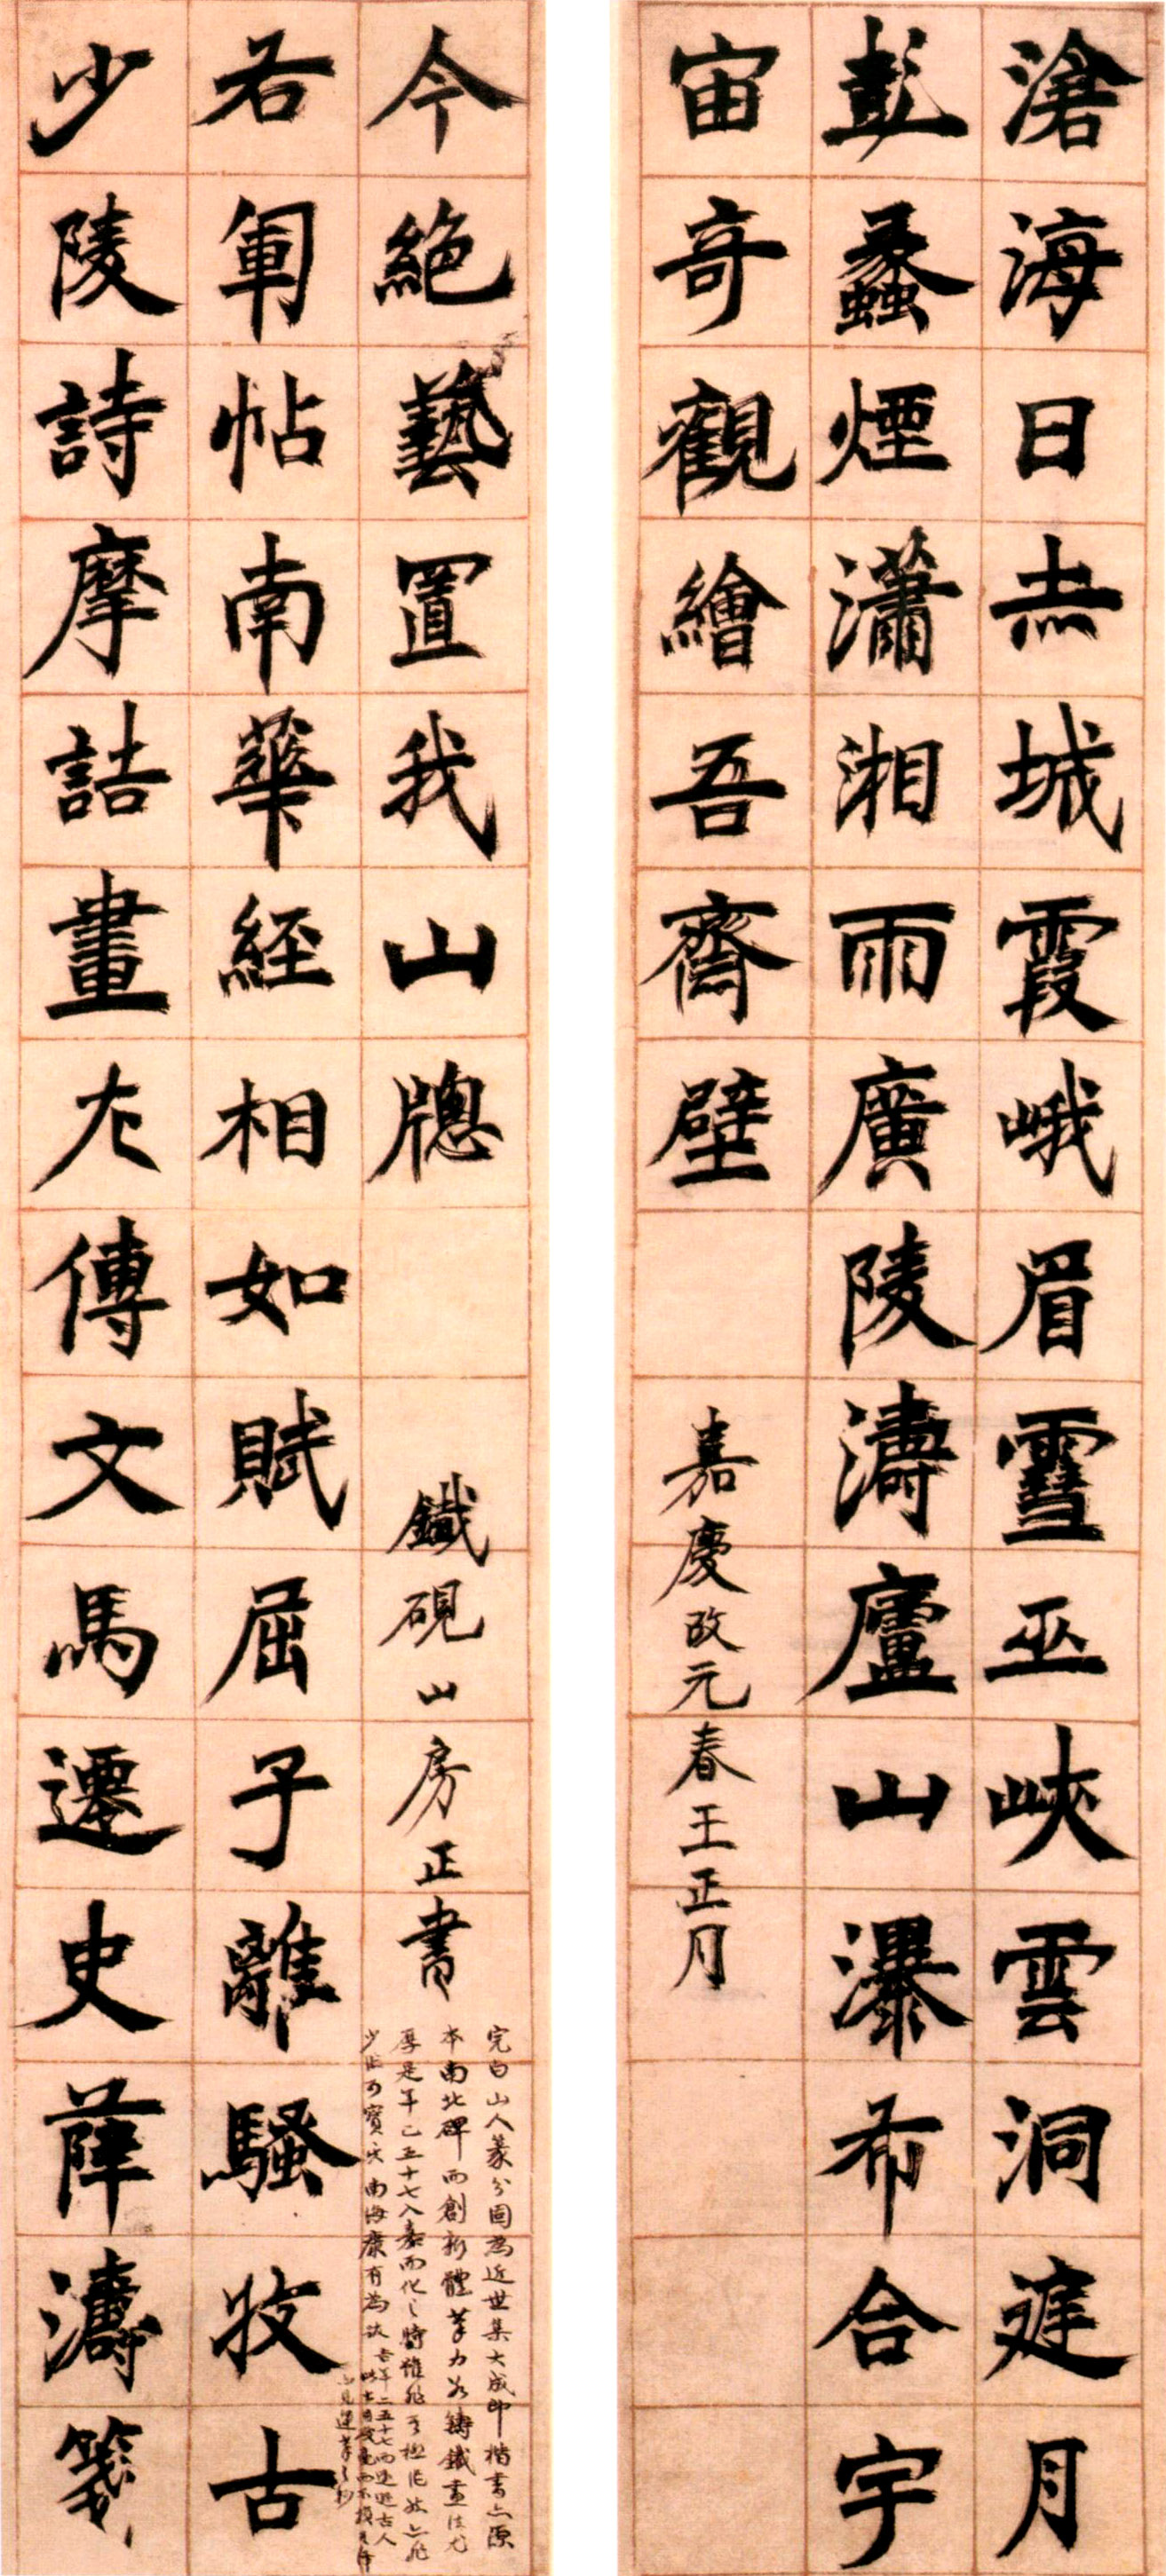 滄海日赤城霞峨眉雪巫峽雲洞庭月
彭蠡煙瀟湘雨廣陵濤廬山瀑布合宇
宙奇觀繪吾齋壁
嘉慶改元春王正月
少陵詩摩詰畫左傳文馬遷史薛濤箋
右軍帖南華經相如賦屈子離騷收古
今絕藝置我山牕
鐵硯山房正書
完白山人篆分固為近世集大成即楷書亦原
本南北碑而創新體筆力如鑄鐵畫法尤
厚是年已五十七入嘉而化之時
少作可寶 南海康有為